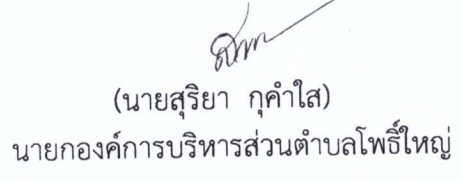 (นายสุริยา กุคำใส)
นายกองค์การบริหารส่วนตำบลโพธิ์ใหญ่